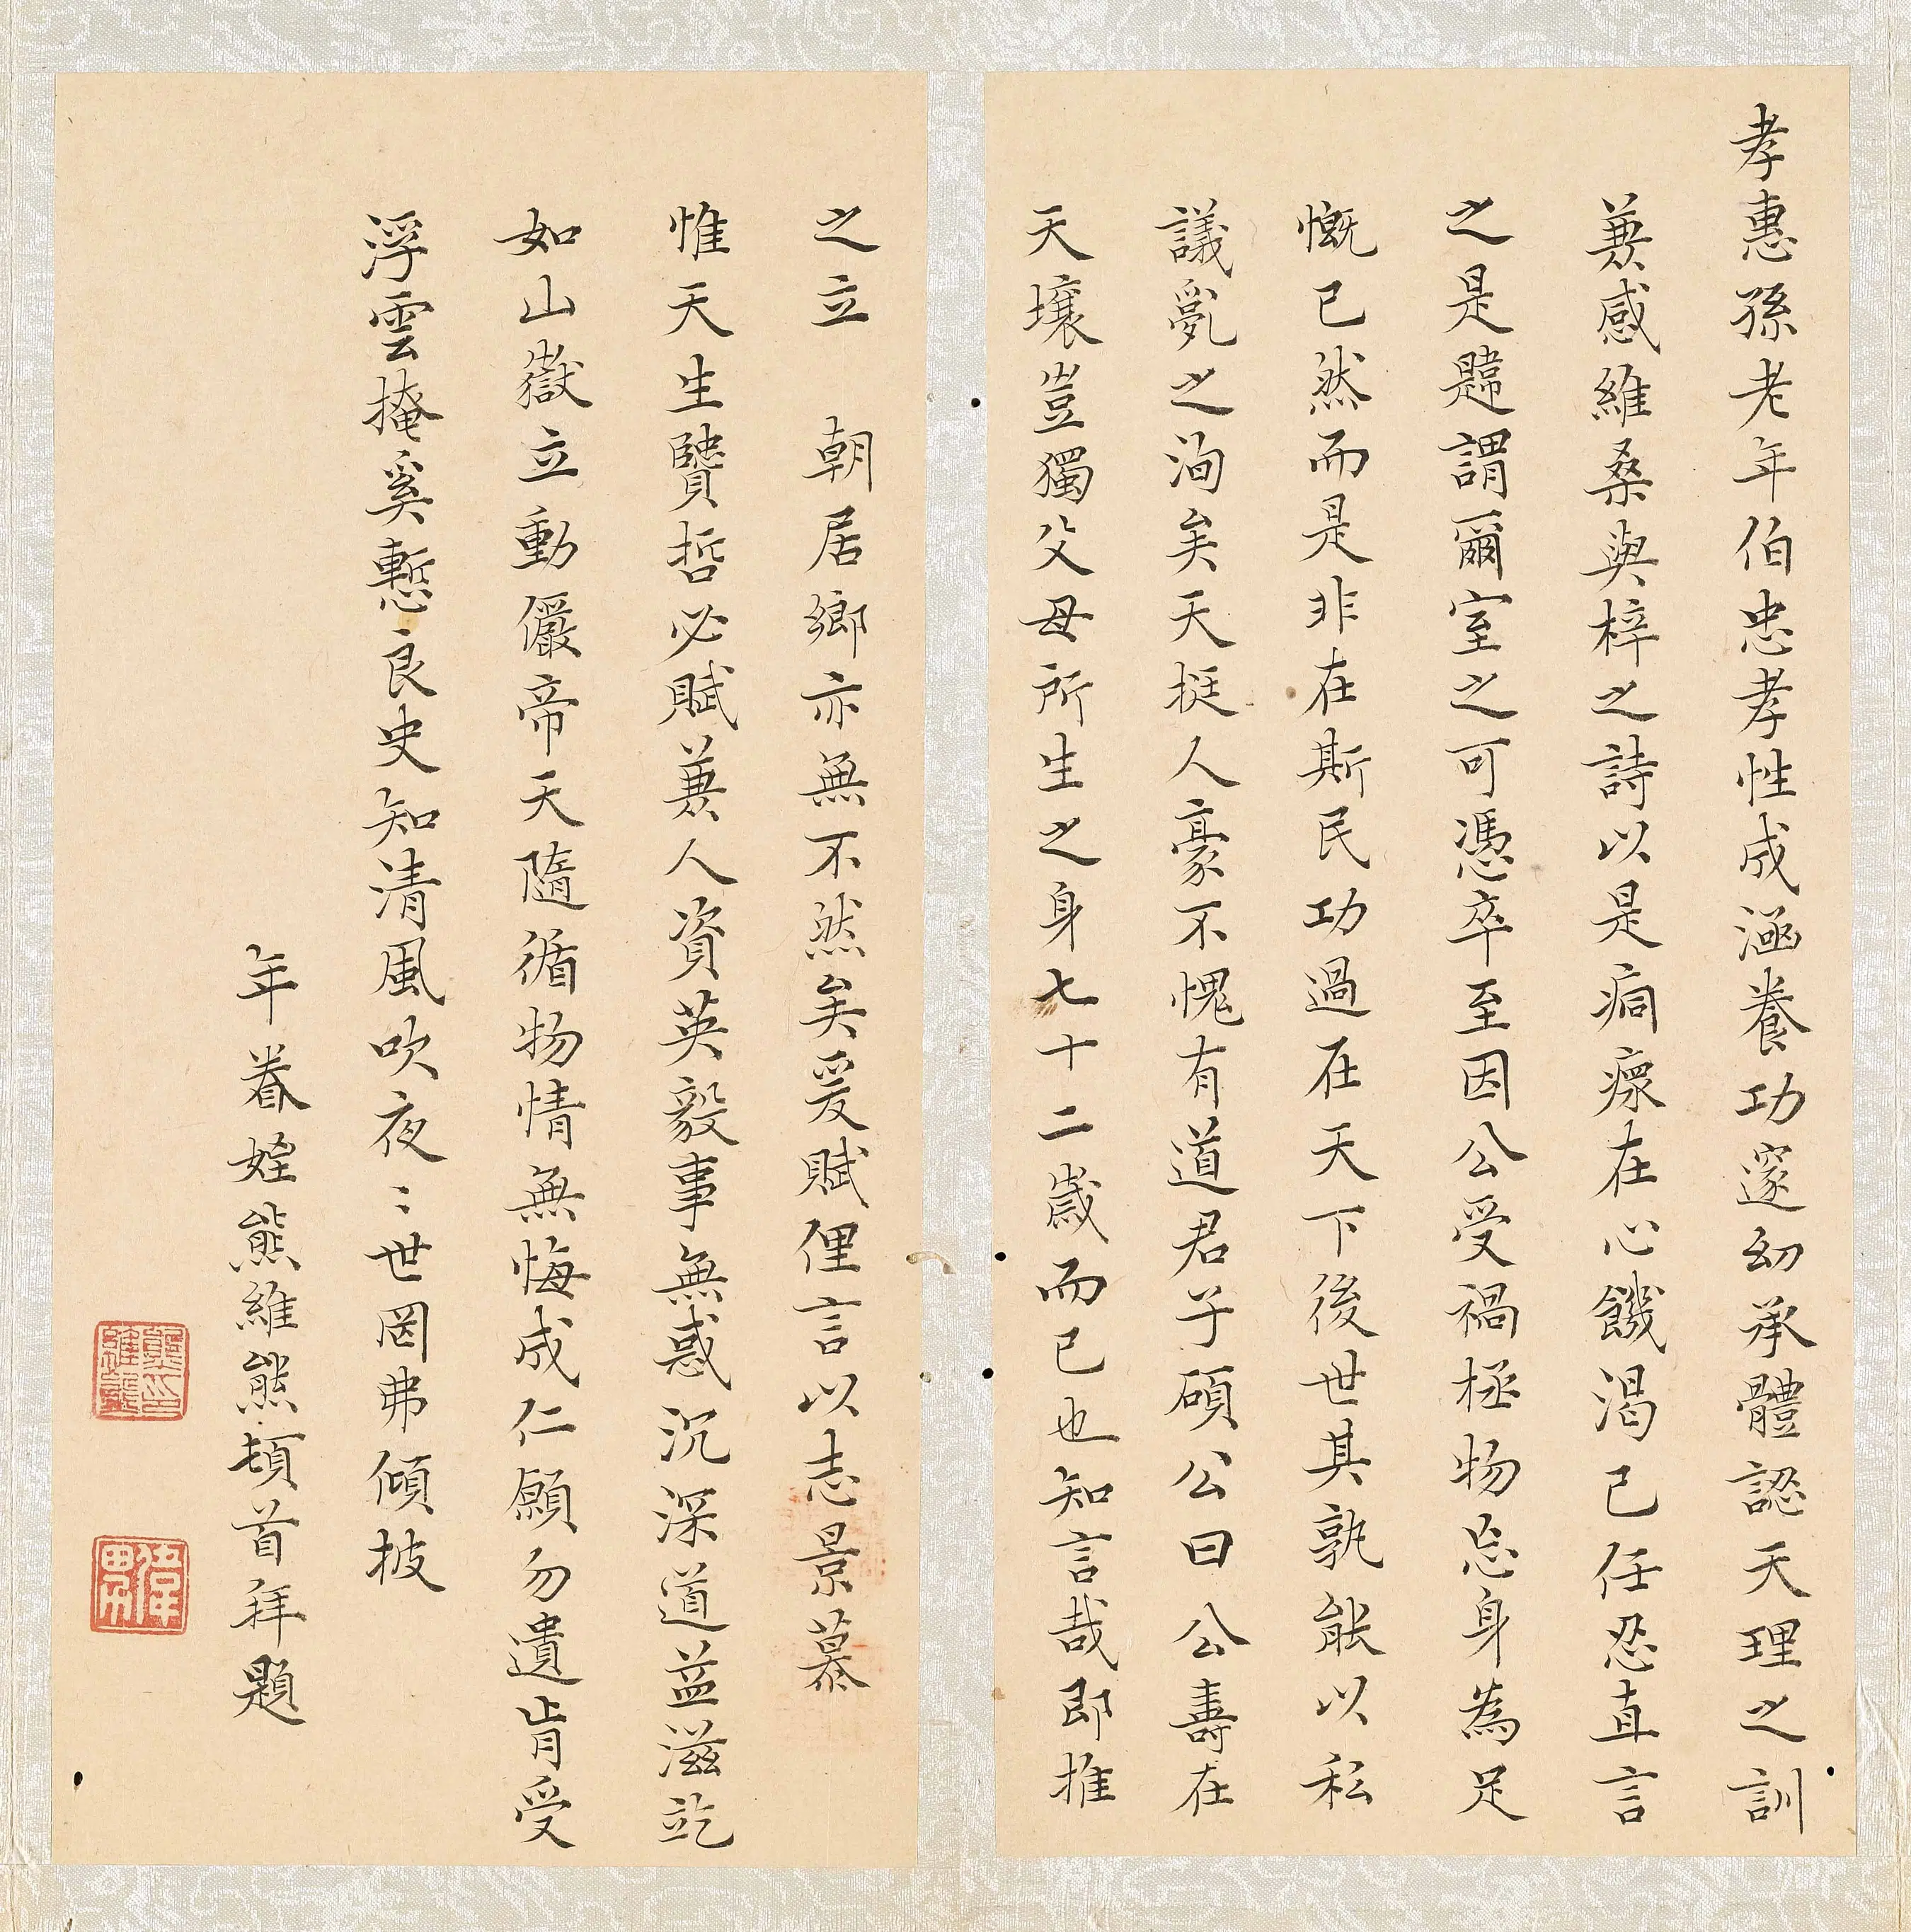 孝惠孫老年伯忠孝性成涵養功邃幼承體認天理之訓
兼感維桑與梓之詩以是痌瘝在心饑渴已任忍直言
之是韙謂爾室之可憑卒至因公受禍拯物忘身為足
慨已然而是非在斯民功過在天下後世其孰能以私
議亂之洵矣天挺人豪不愧有道君子碩公曰公壽在
天壤豈獨父母所生之身七十二歲而已也知言哉即推
之立 朝居鄉亦無不然矣爰賦俚言以志景慕
惟天生賢哲必賦兼人資英毅事無惑沉深道益滋訖
如山嶽立動儼帝天隨循物情無悔成仁願勿遺肯受
浮雲掩奚慙良史知清風吹夜〻世罔弗傾披
年眷姪熊維熊頓首拜題
熊印維熊
偉男